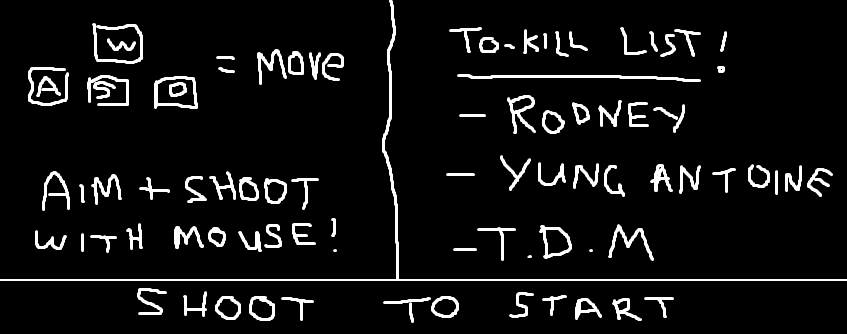 W
A S D = MOVE
AIM + SHOOT
WITH MOUSE!
TO-KILL LIST!
- RODNEY
- YUNG ANTOINE
- T.D.M
SHOOT TO START